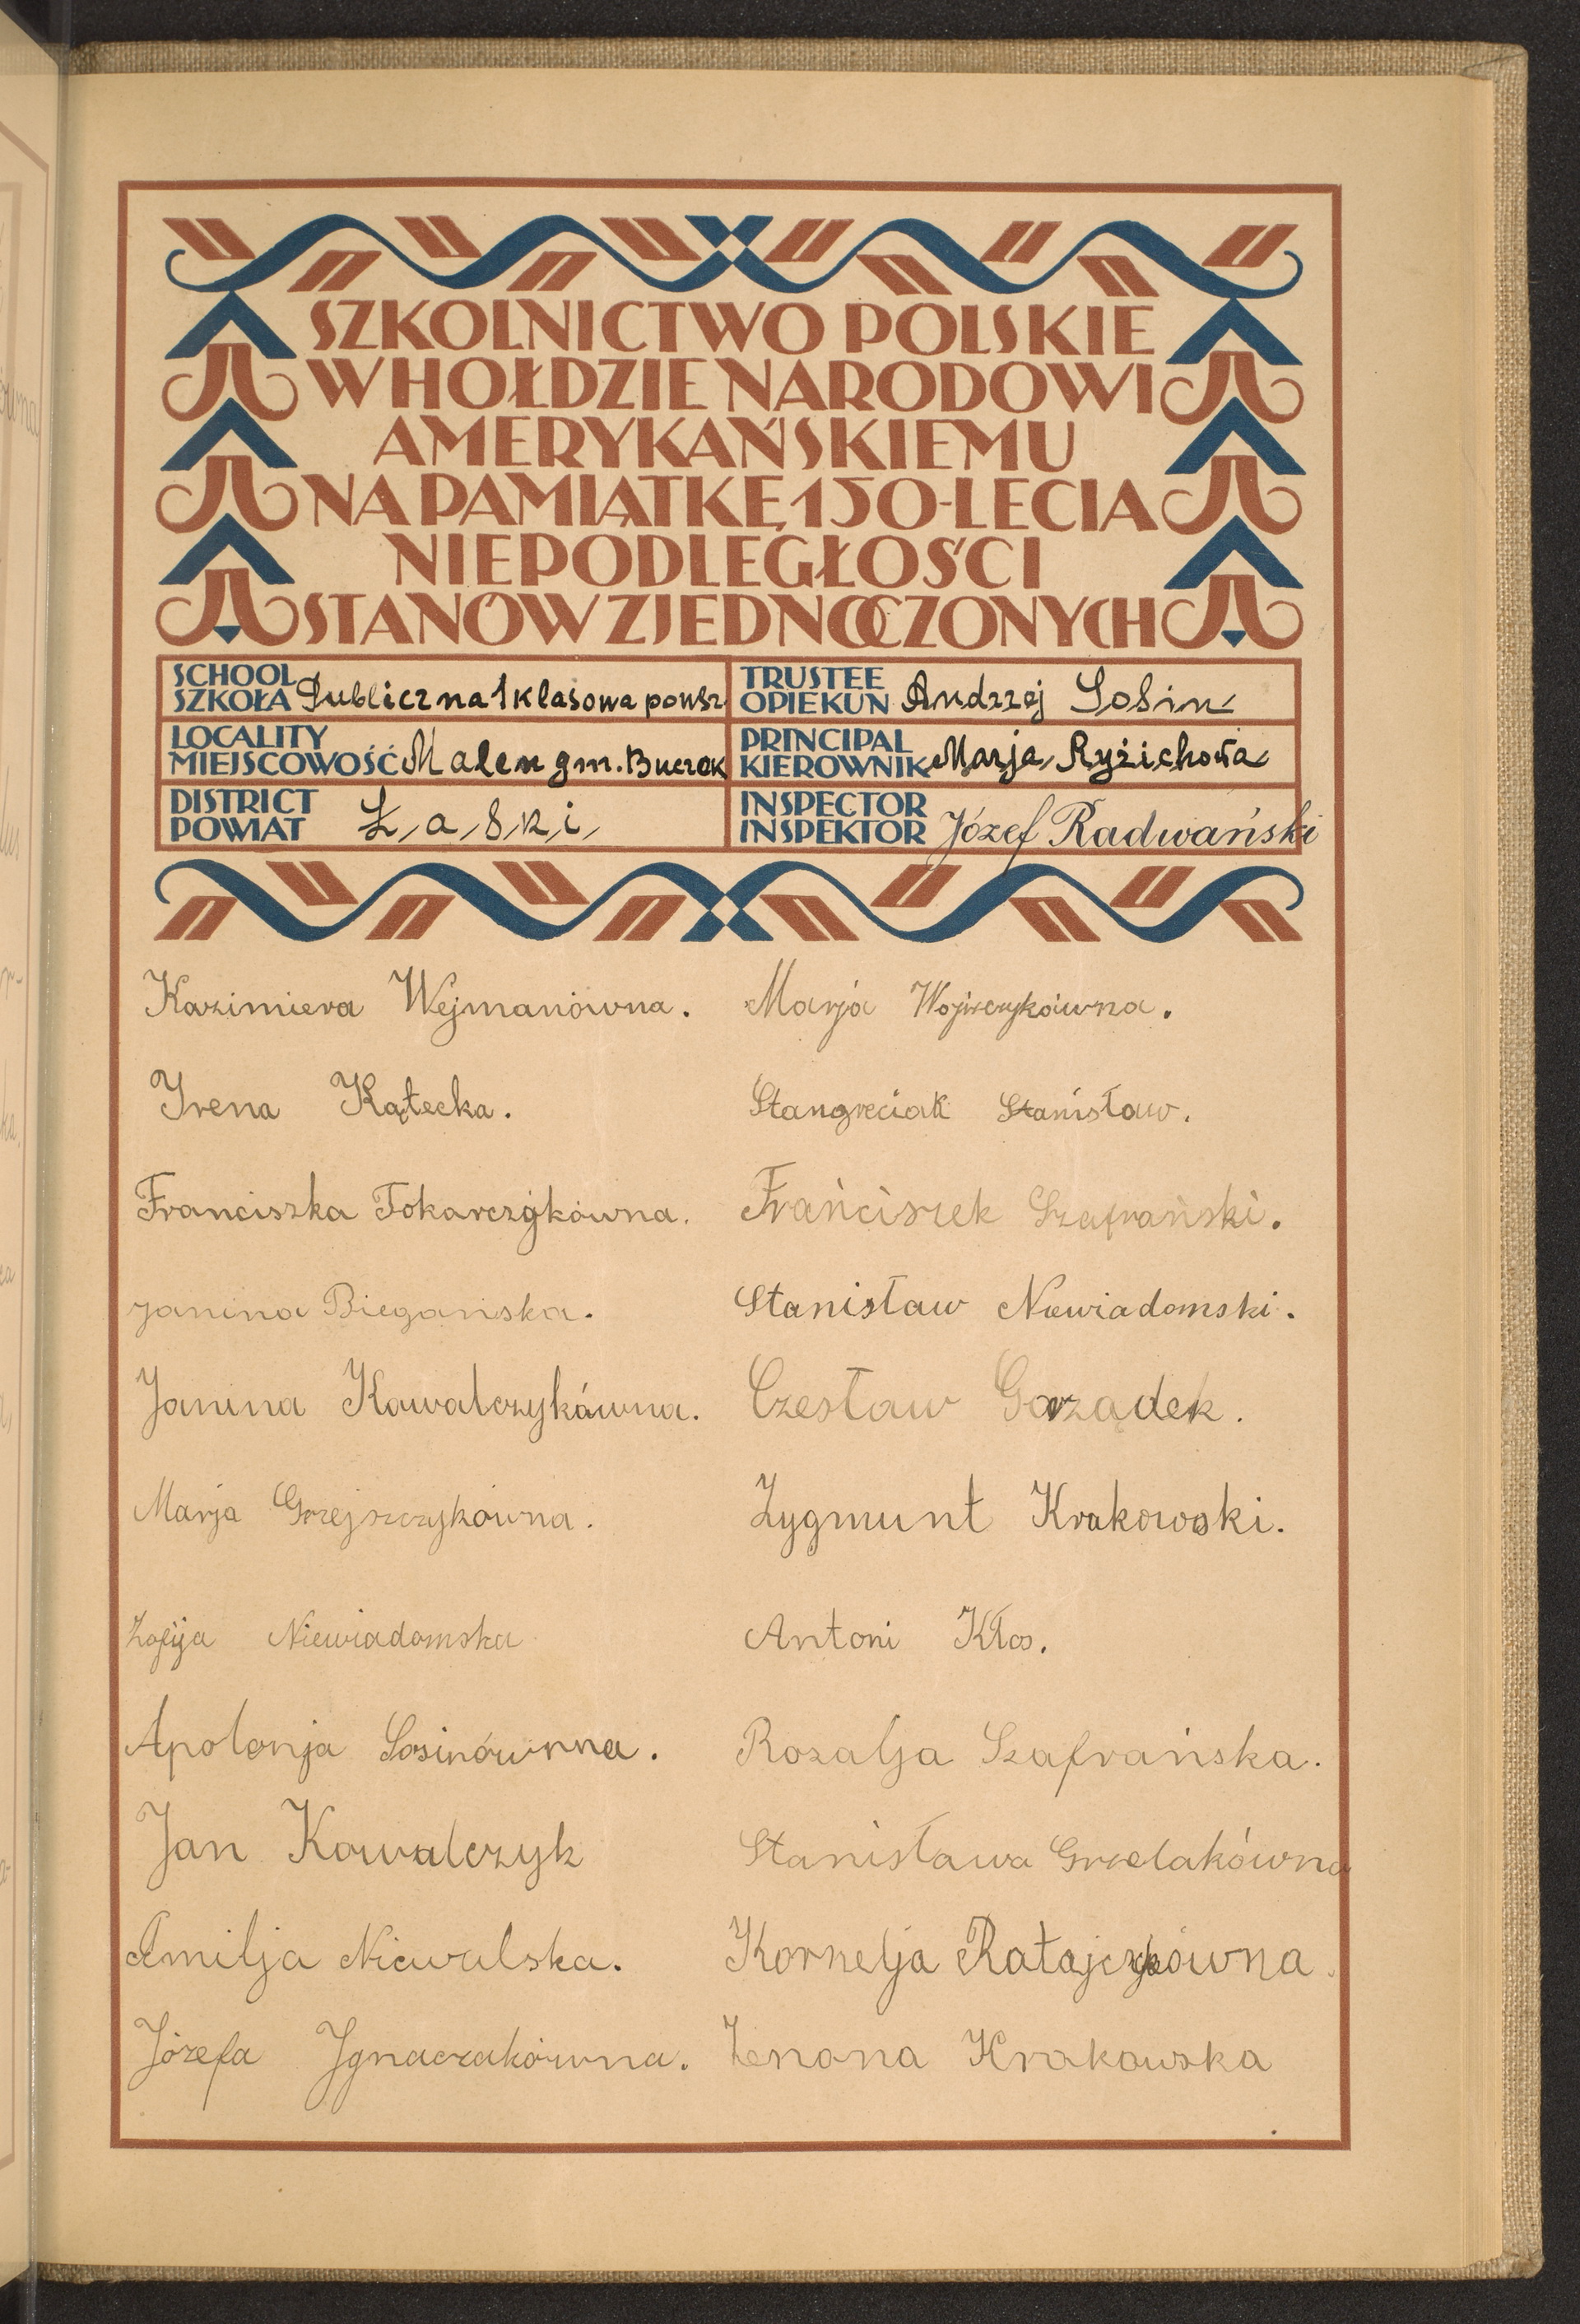 SZKOLNICTWO POLSKIE
W HOŁDZIE NARODOWI
AMERYKAŃSKIEMU
NA PAMIĄTKĘ 150-LECIA
NIEPODLEGŁOŚCI
STANÓW ZJEDNOCZONYCH
SCHOOL
SZKOŁA Publiczna 1 klasowa powsz
LOCALITY
MIEJSCOWOŚĆ Malen gm. Buczek
DISTRICT
POWIAT Łaski
TRUSTEE
OPIEKUN Andrzej Sosin
PRINCIPAL
KIEROWNIK Marja Ryżichowa
INSPECTOR
INSPEKTOR Józef Radwański
Kazimiera Wejmanówna.
Irena Kątecka.
Franciszka Tokarczykówna.
Janina Biegańska.
Janina Kawalczykówna.
Marja Grzejszczykówna.
Zofija Niewiadomska
Apolonja Sosinówna.
Jan Kowalczyk
Emilja Niewulska.
Józefa Ignaczakówna.
Marja Wojwczykówna.
Stangreciak Stanisław.
Franciszek Szafrański.
Stanisław Niewiadomski.
Czesław Gorządek.
Zygmunt Krakowski.
Antoni Kłos.
Rozalja Szafrańska.
Stanisława Grzelakówna
Kornelja Ratajczykówna.
Zenona Krakowska